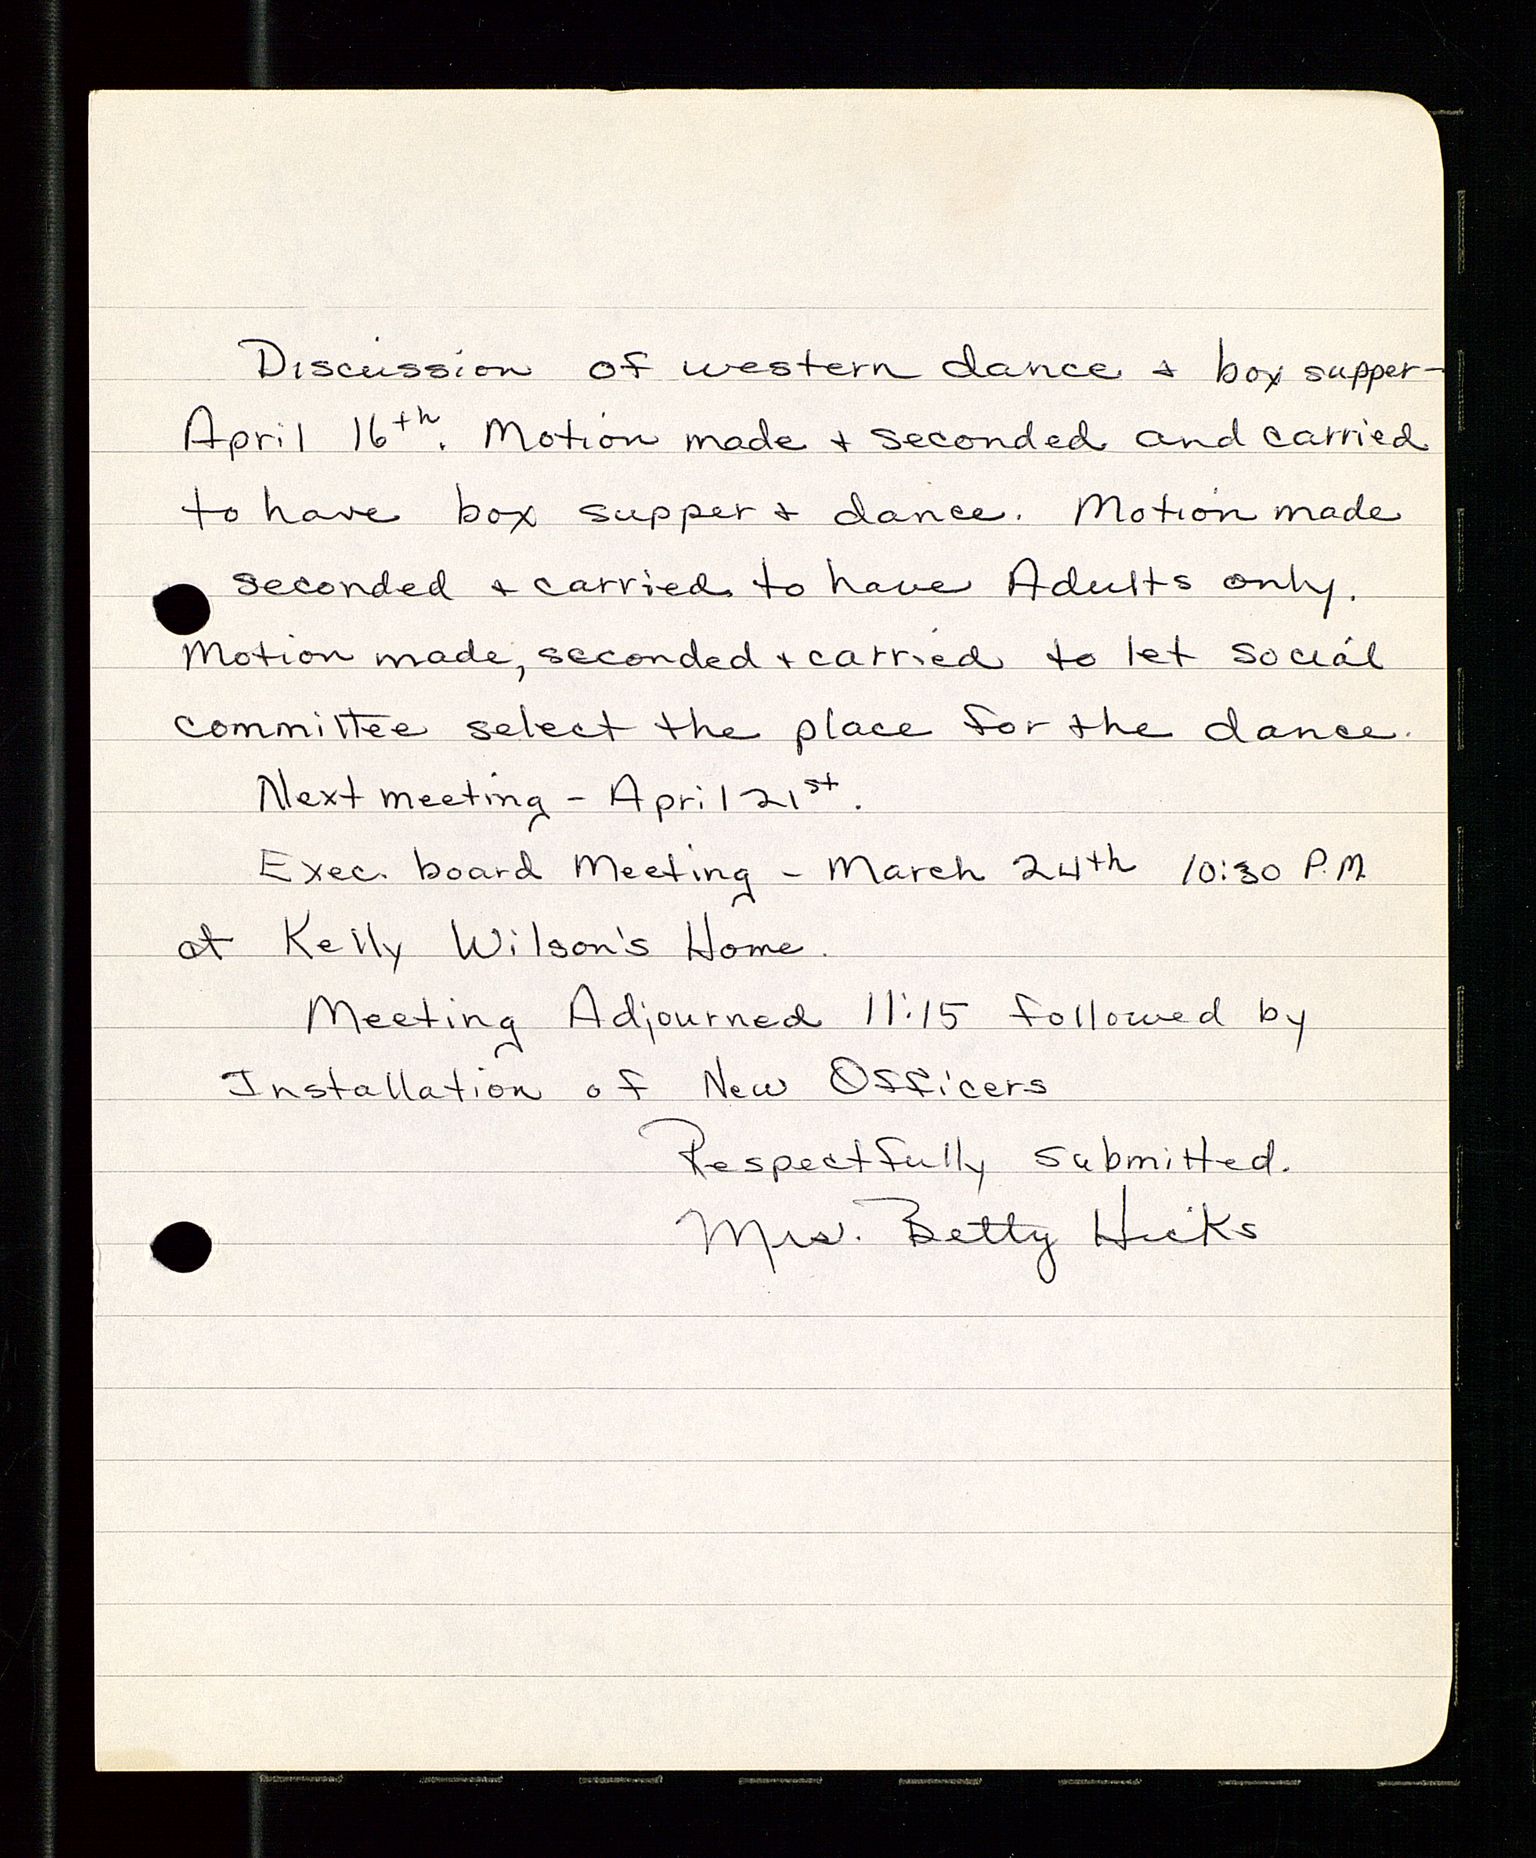 Discussion of western dance & box supper-
April 16th. Motion made & seconded and carried
to have box supper & dance. Motion made
seconded & carried to have Adults only.
Motion made, seconded & carried to let social
committee select the place for the dance.
Next meeting - April 21st.
Exec. board Meeting - March 24th 10:30 P.M.
at Kelly Wilson's Home.
Meeting Adjourned 11:15 followed by
Installation of New Officers
Respectfully submitted.
Mrs. Betty Hicks